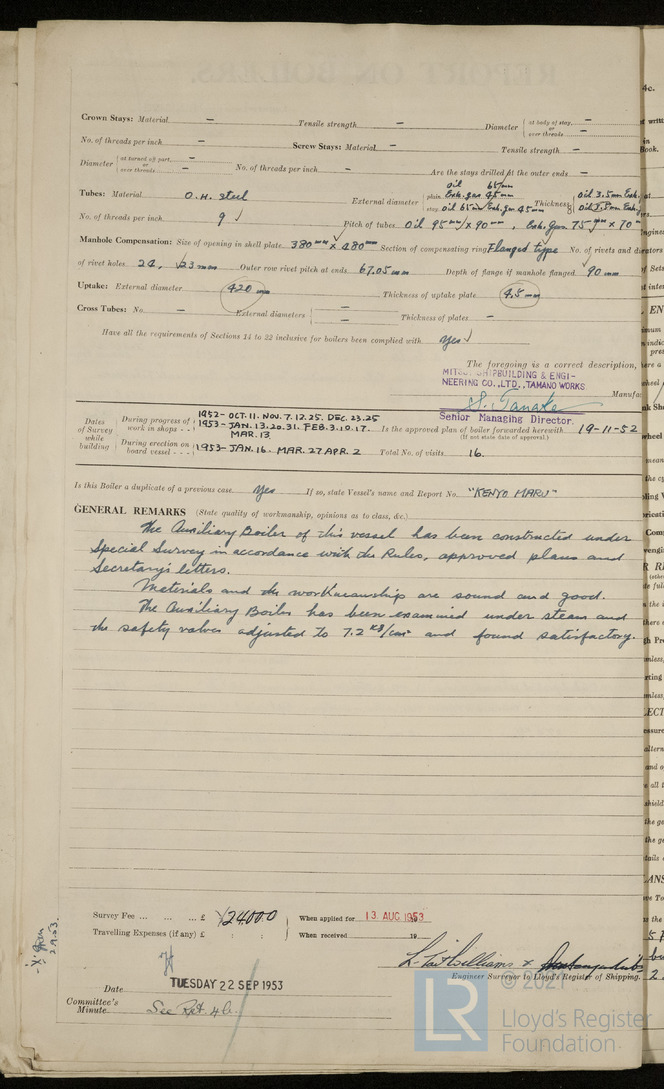 Crown Stays: Material – Tensile strength – Diameter { at body of stay, – or over threads –
No. of threads per inch – Screw Stays: Material – Tensile strength –
Diameter { at turned off part, – or over threads – No. of threads per inch – Are the stays drilled at the outer ends –
Tubes: Material O.H. steel External diameter { plain Oil 65mm Exh. gas 45mm stay Oil 65mm Exh. gas 45mm Thickness { Oil 3.5mm Exh.
No. of threads per inch 9 Pitch of tubes Oil 95mm x 90mm, Exh. gas 75mm x 70
Manhole Compensation: Size of opening in shell plate 380mm x 480mm Section of compensating ring Flanged type No. of rivets and di
of rivet holes 24, 23mm Outer row rivet pitch at ends 67.05mm Depth of flange if manhole flanged 90mm
Uptake: External diameter 420mm Thickness of uptake plate 4.5mm
Cross Tubes: No. – External diameters { – – Thickness of plates –
Have all the requirements of Sections 14 to 22 inclusive for boilers been complied with yes
The foregoing is a correct description,
MITSUI SHIPBUILDING & ENGI-
NEERING CO., LTD., TAMANO WORKS
Manufac
S. Tanaka
Senior Managing Director.
Dates of Survey while building { During progress of work in shops - - 1952- OCT. 11. NOV. 7. 12. 25. DEC. 23. 25
1953- JAN. 13. 20. 31. FEB. 3. 10. 17.
MAR. 13 Is the approved plan of boiler forwarded herewith 19-11-52
(If not state date of approval.)
During erection on board vessel - - - 1953-JAN. 16. MAR. 27 APR. 2 Total No. of visits 16.
Is this Boiler a duplicate of a previous case. Yes If so, state Vessel's name and Report No. "KENYO MARU"
GENERAL REMARKS (State quality of workmanship, opinions as to class, &c.)
The Auxiliary Boiler of this vessel has been constructed under
Special Survey in accordance with the Rules, approved plans and
Secretary's letters.
Materials and the workmanship are sound and good.
The Auxiliary Boiler has been examined under steam and
the safety valves adjusted to 7.2 kg/cm² and found satisfactory.
Survey Fee ... ... ... £ ¥24000 When applied for 13 AUG 1953
Travelling Expenses (if any) £ : : When received 19
L. Tait Williams x
Engineer Surveyor to Lloyd's Register of Shipping.
Date TUESDAY 22 SEP 1953
Committee's Minute. See Rpt. 4b.
© 2021
LR Lloyd's Register
Foundation.